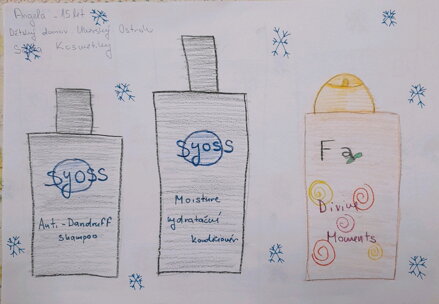 Angela - 15 let
Dětský domov Uherský Ostroh
Sada Kosmetiky
Syoss
Anti-Dandruff
Shampoo
Syoss
Moisture
hydratační
kondicionér
Fa
Divine
Moments